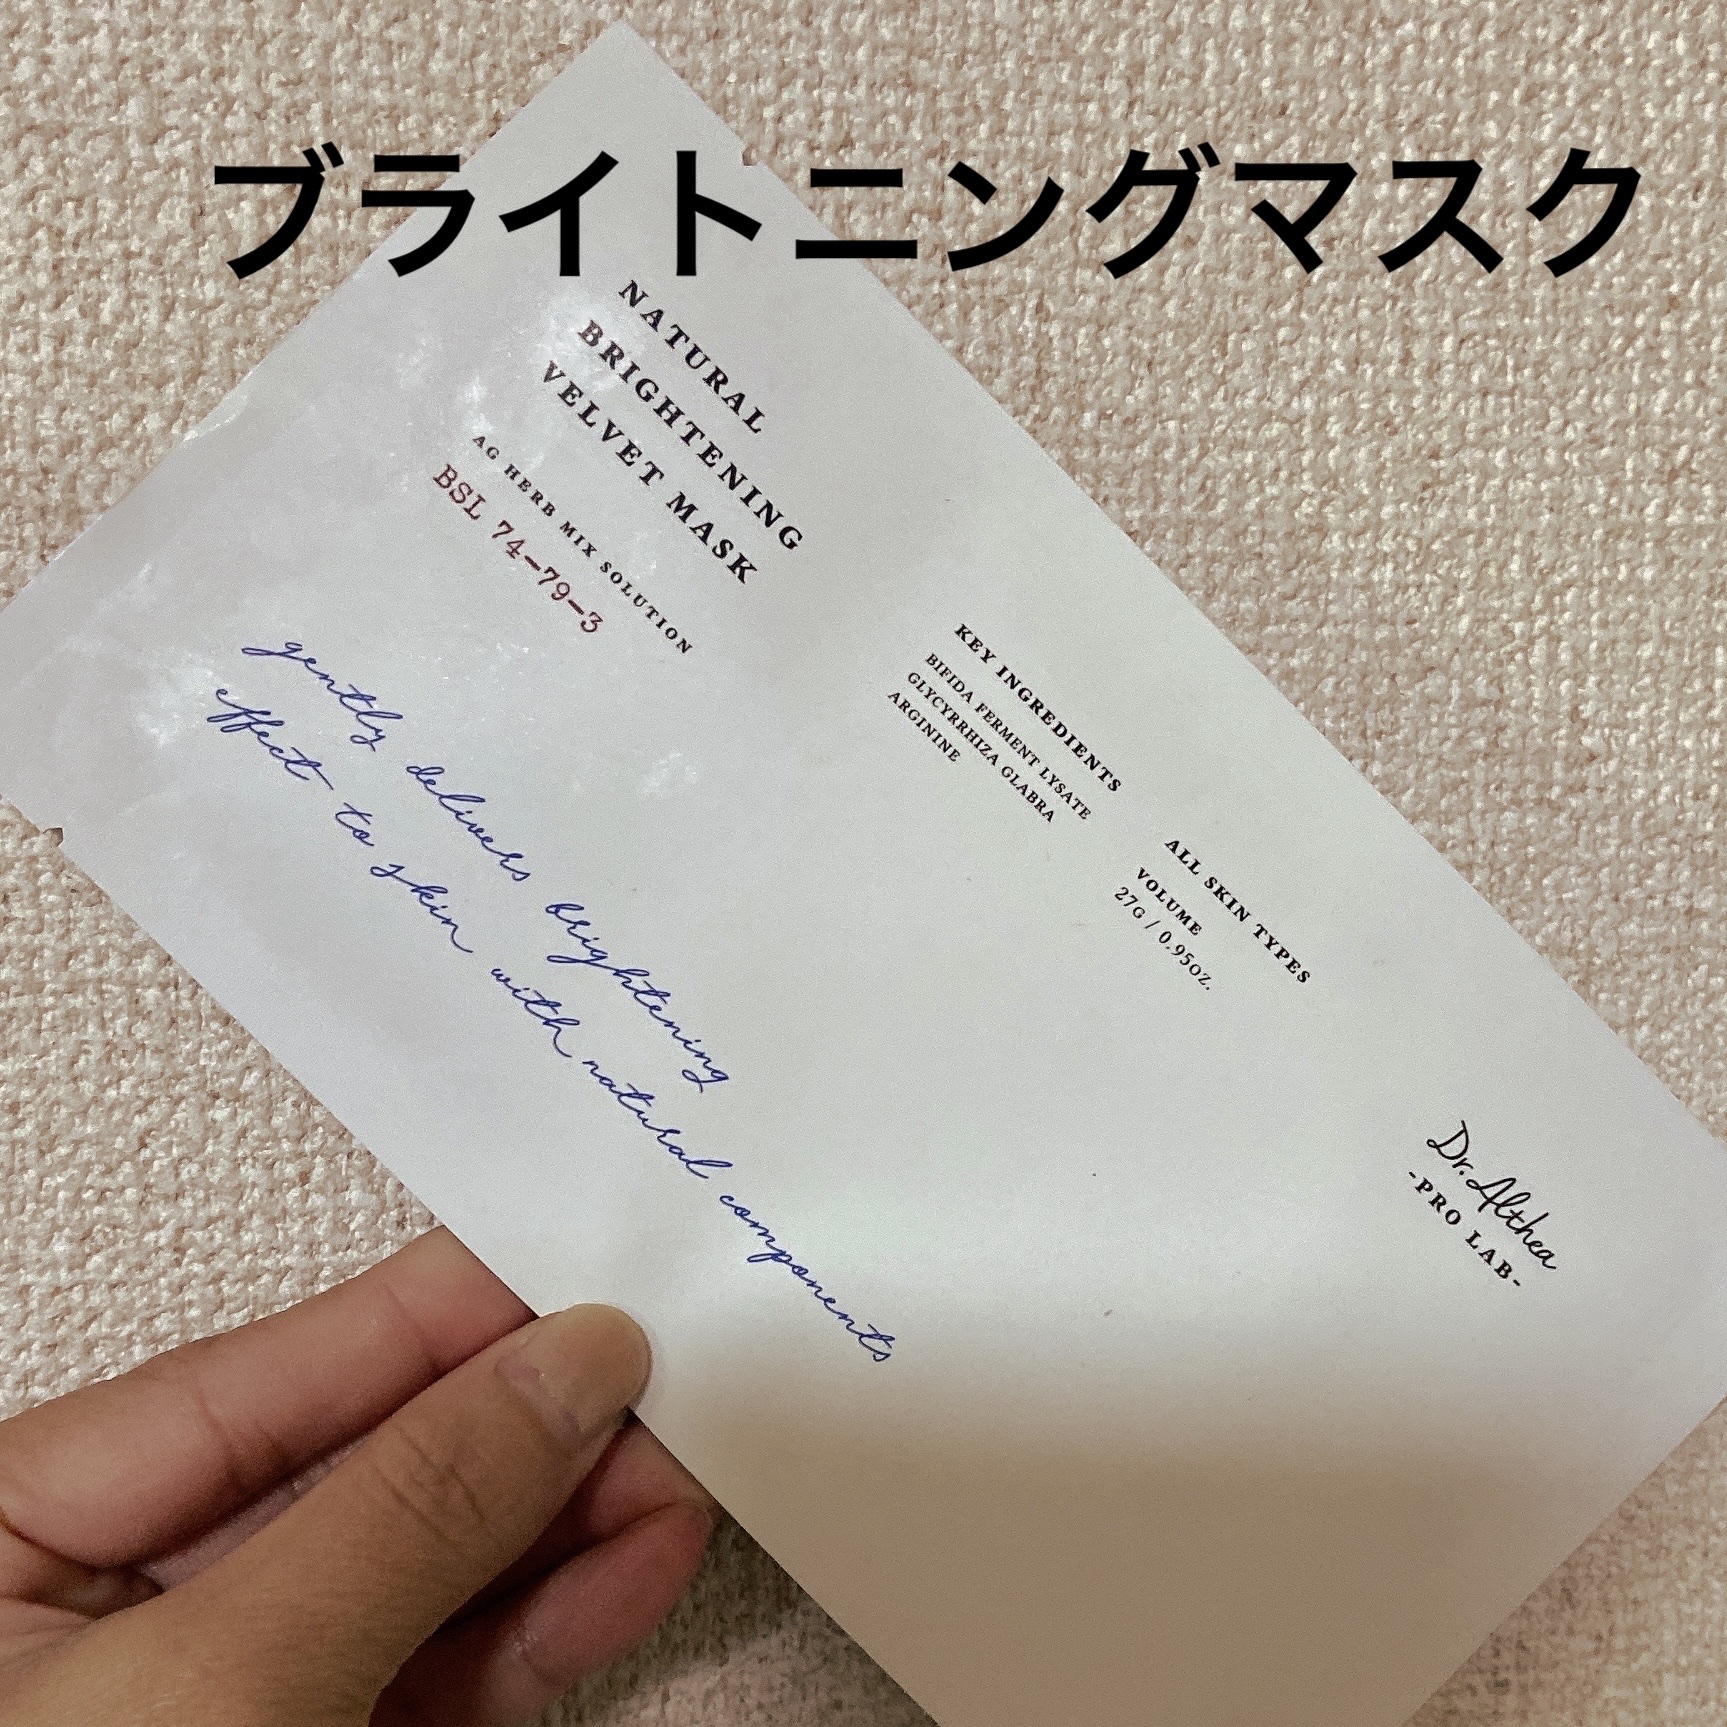 ブライトニングマスク
NATURAL
BRIGHTENING
VELVET MASK
AG HERB MIX SOLUTION
BSL 74-79-3
gently delivers brightening
effect to skin with natural components
KEY INGREDIENTS
BIFIDA FERMENT LYSATE
GLYCYRRHIZA GLABRA
ARGININE
ALL SKIN TYPES
VOLUME
27G / 0.95OZ.
Dr. Althea
-PRO LAB-